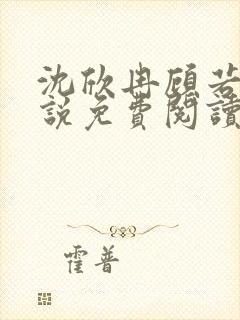 沈欣冉顾若
說免費閱讀
霍普